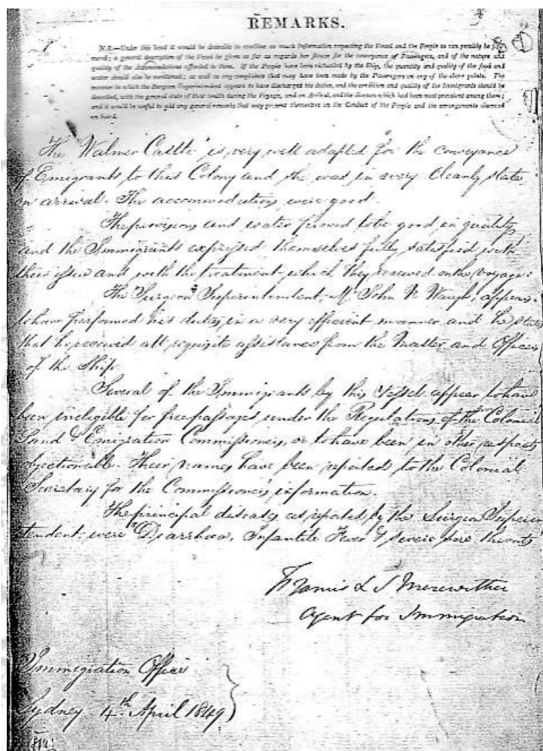 REMARKS.
N.B.—Under this head it would be desirable to combine as much information respecting the Vessel and the People as can possibly be
; a general description of the Vessel to be given as far as regards her fitness for the conveyance of Passengers, and of the nature and
quality of the Accommodations afforded to them. If the People have been victualled by the Ship, the quantity and quality of the food and
water should also be mentioned; as well as any complaints that may have been made by the Passengers on any of the above points. The
manner in which the Surgeon Superintendent appears to have discharged his duties, and the condition and quality of the Immigrants should be
described, with the general state of their health during the Voyage, and on Arrival, and the diseases which had been most prevalent among them;
and it would be useful to add any general remarks that may present themselves on the Conduct of the People and the arrangements observed
on board.
The 'Walmer Castle' is very well adapted for the conveyance
of Emigrants to this Colony and she was in a very cleanly state
on arrival. The accommodations were good.
The provisions and water proved to be good in quality
and the Immigrants expressed themselves fully satisfied with
these and with the treatment which they received on the voyage.
The Surgeon Superintendent Mr. John N. Waugh, appears
to have performed his duties in a very efficient manner and he states
that he received all requisite assistance from the Master and Officers
of the Ship.
Several of the Immigrants by this Vessel appear to have
been ineligible for free passages under the Regulations of the Colonial
Land & Emigration Commissioners, or to have been in other respects
objectionable. Their names have been reported to the Colonial
Secretary for the Commissioners information.
The principal diseases, as reported by the Surgeon Superin
tendent were Diarrhoea, Infantile Fever & severe sore throats
Francis L S Merewether
Agent for Immigration
Immigration Office
Sydney 4th April 1849